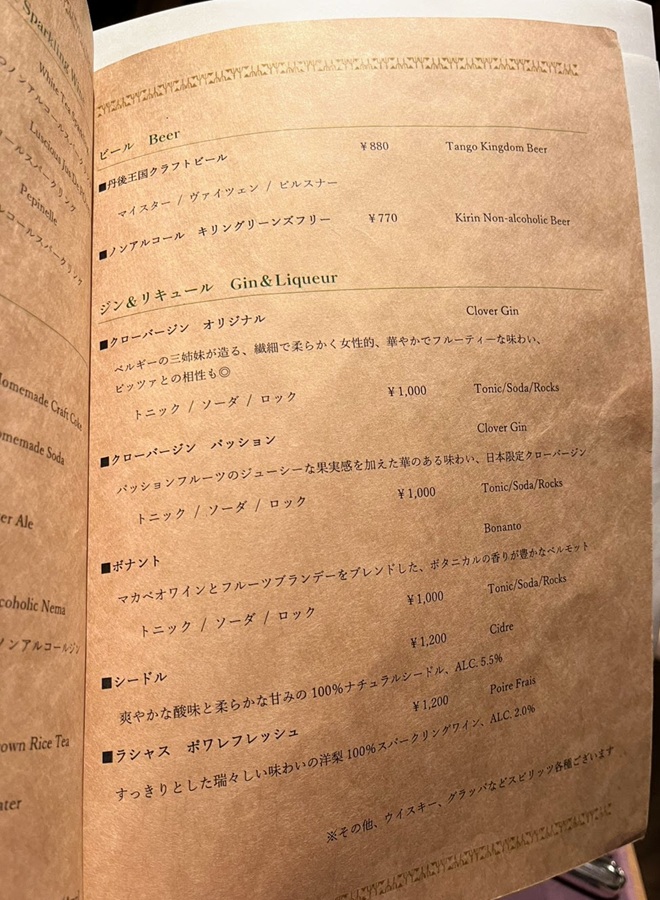 Sparkling
White Tea
ノンアルコールスパークリング
Luscious
Pepinelle
コールスパークリング
Homemade Craft Cola
Homemade Soda
er Ale
coholic Nema
ノンアルコールジン
rown Rice Tea
ater
ビール Beer
■丹後王国クラフトビール ¥880 Tango Kingdom Beer
マイスター / ヴァイツェン / ピルスナー
■ノンアルコール キリングリーンズフリー ¥770 Kirin Non-alcoholic Beer
ジン&リキュール Gin&Liqueur
■クローバージン オリジナル Clover Gin
ベルギーの三姉妹が造る、繊細で柔らかく女性的、華やかでフルーティーな味わい、
ピッツァとの相性も◎
トニック / ソーダ / ロック ¥1,000 Tonic/Soda/Rocks
■クローバージン パッション Clover Gin
パッションフルーツのジューシーな果実感を加えた華のある味わい、日本限定クローバージン
トニック / ソーダ / ロック ¥1,000 Tonic/Soda/Rocks
■ボナント Bonanto
マカベオワインとフルーツブランデーをブレンドした、ボタニカルの香りが豊かなベルモット
トニック / ソーダ / ロック ¥1,000 Tonic/Soda/Rocks
■シードル ¥1,200 Cidre
爽やかな酸味と柔らかな甘みの100%ナチュラルシードル、ALC. 5.5%
■ラシャス ポワレフレッシュ ¥1,200 Poire Frais
すっきりとした瑞々しい味わいの洋梨100%スパークリングワイン、ALC. 2.0%
※その他、ウイスキー、グラッパなどスピリッツ各種ございます